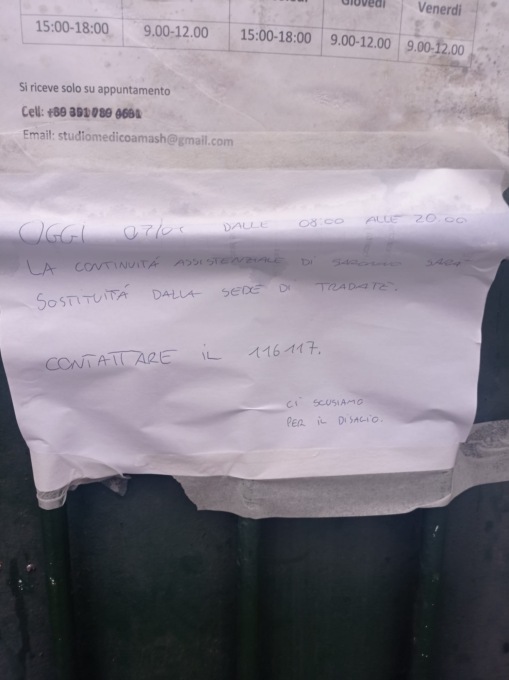 Venerdì
15:00-18:00 9.00-12.00 15:00-18:00 9.00-12.00 9.00-12.00
Si riceve solo su appuntamento
Cell: +39
Email: studiomedicoamash@gmail.com
OGGI DALLE 08:00 ALLE 20:00
LA CONTINUITÁ ASSISTENZIALE DI SARÁ
SOSTITUITÁ DALLA SEDE DI TRADATE.
CONTATTARE IL 116117.
CI SCUSIAMO
PER IL DISAGIO.